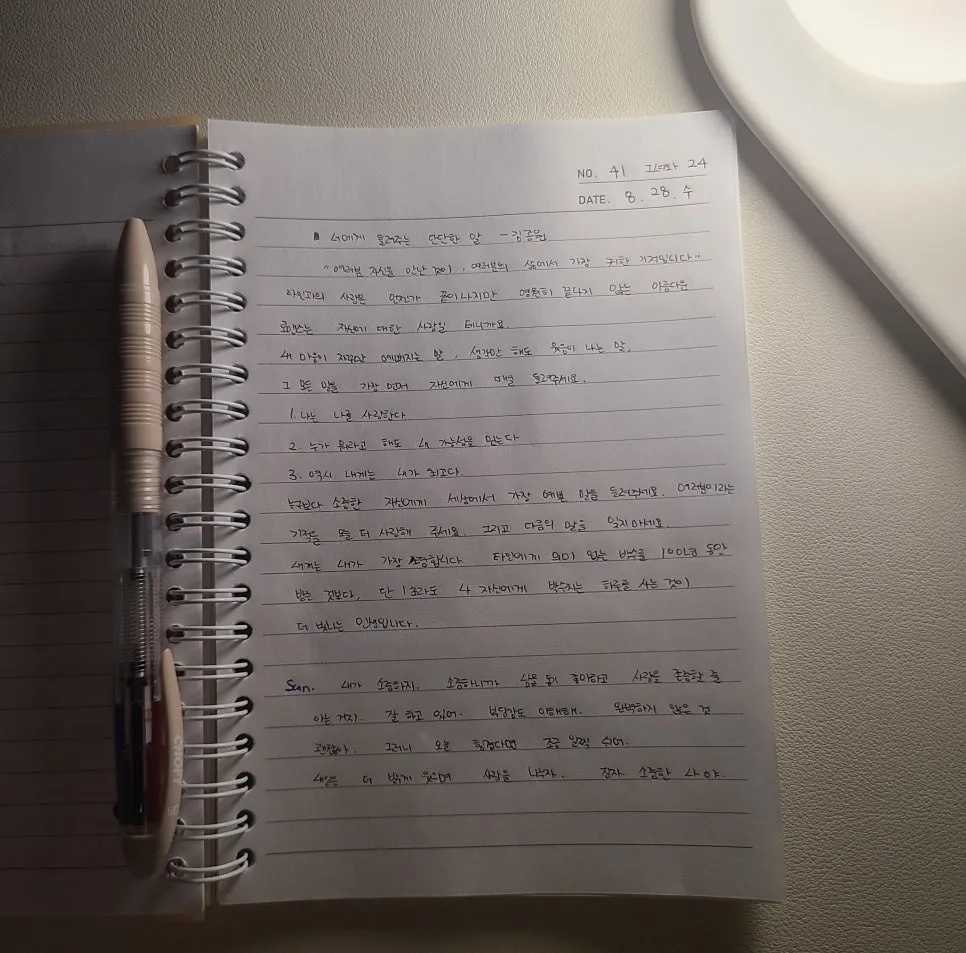 NO. 41 그녀와 24
DATE. 8. 28. 수
너에게 들려주는 단단한 말 - 김종원
"여러분 자신을 만난 것이, 여러분의 삶에서 가장 귀한 기적입니다"
타인과의 사랑은 언젠가 끝이나지만 영원히 끝나지 않는 아름다운
로맨스는 자신에 대한 사랑일 테니까요.
내 마음이 지금보다 예뻐지는 말, 생각만 해도 웃음이 나는 말,
그 모든 말을 가장 먼저 자신에게 매일 들려주세요.
1. 나는 나를 사랑한다
2. 누가 뭐라고 해도 내 가능성을 믿는다
3. 역시 내게는 내가 최고다.
누구보다 소중한 자신에게 세상에서 가장 예쁜 말을 들려주세요. 여러분이라는
기적을 오늘 더 사랑해 주세요. 그리고 다음의 말을 잊지마세요.
내게는 내가 가장 소중합니다 타인에게 의미 없는 박수를 100년 동안
받는 것보다, 단 1초라도 나 자신에게 박수치는 하루를 사는 것이
더 빛나는 인생입니다.
Sun. 내가 소중하지. 소중하니까 남을 돕기 좋아하고 사람을 존중할 줄
아는 거지. 잘 하고 있어. 부담감도 이해해. 완벽하지 않은 것
괜찮아. 그러니 오늘 힘겹다면 조금 일찍 쉬어.
내일은 더 밝게 웃으며 사랑을 나누자. 잘자. 소중한 나야.